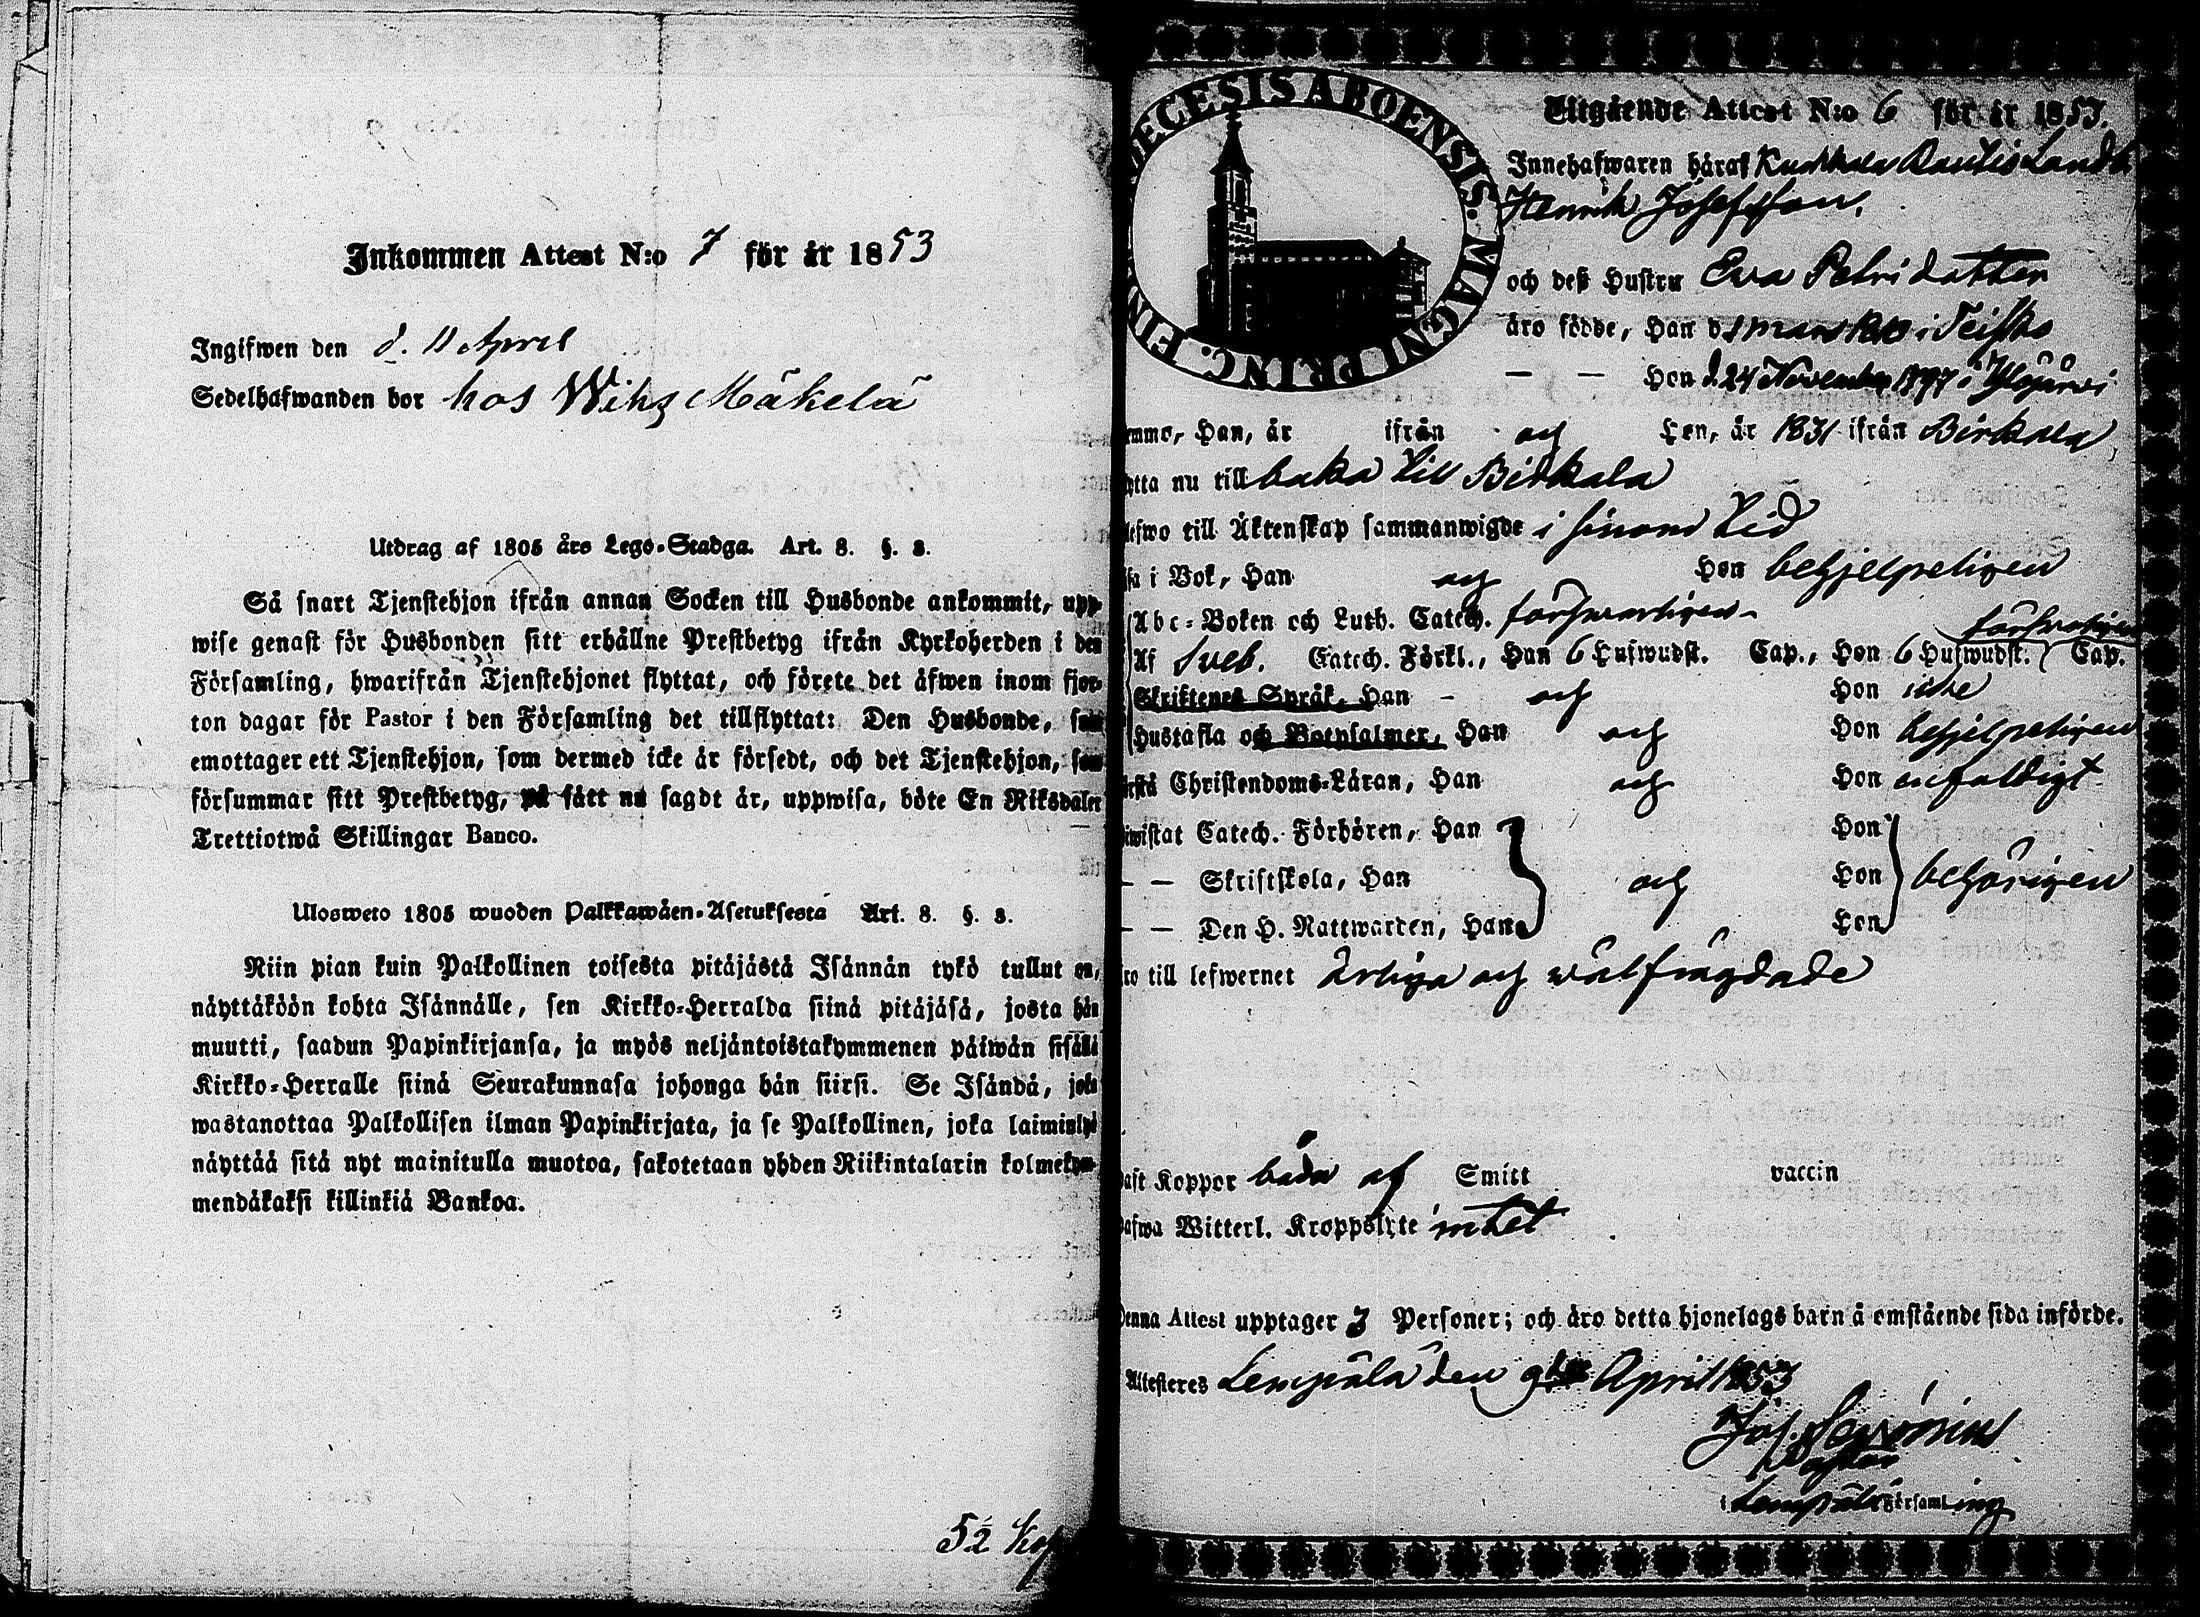 Inkommen Attest N:o 7 för år 1853
Ingifwen den d. 11 April
Sedelhafwanden bor hos Wihs Mäkelä
Utdrag af 1805 års Lego-Stadga. Art. 8. §. 3.
Så snart Tjenstehjon ifrån annan Socken till Husbonde ankommit, upp-
wise genast för Husbonden sitt erhållne Prestbetyg ifrån Kyrkoherden i den
Församling, hwarifrån Tjenstehjonet flyttat, och förete det äfwen inom fjor-
ton dagar för Pastor i den Församling det tillflyttat: Den Husbonde, som
emottager ett Tjenstehjon, som dermed icke är försedt, och det Tjenstehjon, som
försummar sitt Prestbetyg, på sätt nu sagdt är, uppwisa, böte En Riksdaler
Trettiotwå Skillingar Banco.
Ulosweto 1805 wuoden Palkkawäen-Asetuksesta Art. 8. §. 3.
Niin pian kuin Palkollinen toisesta pitäjästä Isännän tykö tullut on,
näyttäköön kohta Isännälle, sen Kirkko-Herralda siinä pitäjäsä, josta hän
muutti, saadun Papinkirjansa, ja myös neljäntoistakymmenen päiwän sisällä
Kirkko-Herralle siinä Seurakunnasa johonga hän siirsi. Se Isändä, joka
wastanottaa Palkollisen ilman Papinkirjata, ja se Palkollinen, joka laiminlyö
näyttää sitä nyt mainitulla muotoa, sakotetaan yhden Riikintalarin kolmekym-
mendäkaksi killinkiä Bankoa.
52 Kop
ECESIS ABOENSIS. MAGNI PRINC. FIN
Utgående Attest N:o 6 för år 1853.
Innehafwaren häraf Rautis Landb.
Henrik Josefsson,
och deß Hustru Eva Petri dotter
äro födde, Han i Teisko
— — Hon d. 24 November 1797 i Ylöjärvi
mmo, Han, år ifrån och Hon, år 1831 ifrån Birkala
tta nu till baka till Birkala
lefwo till Äktenskap sammanwigde i sinom tid
sa i Bok, Han och Hon behjelpeligen
Abc-Boken och Luth. Catech. försvarligen
försvarligen
Af Sveb. Catech. Förkl., Han 6 Hufwudst. Cap., Hon 6 Hufwudst. Cap.
Skriftenes Språk, Han - och Hon icke
Hustafla och Botpsalmer, Han och Hon behjelpeligen
rstå Christendoms-Läran, Han och Hon enfaldigt
iwistat Catech. Förhören, Han Hon
— — Skriftskola, Han och Hon behörigen
— — Den H. Nattwarden, Han Hon
ro till lefwernet ärliga och välfrägdade
aft Koppor båda af Smitt vaccin
afwa Witterl. Kroppslyte intet
Denna Attest upptager 3 Personer; och äro detta hjonelags barn å omstående sida införde.
Attesteras Lempälä den 9de April 1853
Jos.
Pastor
i Lempälä Församling